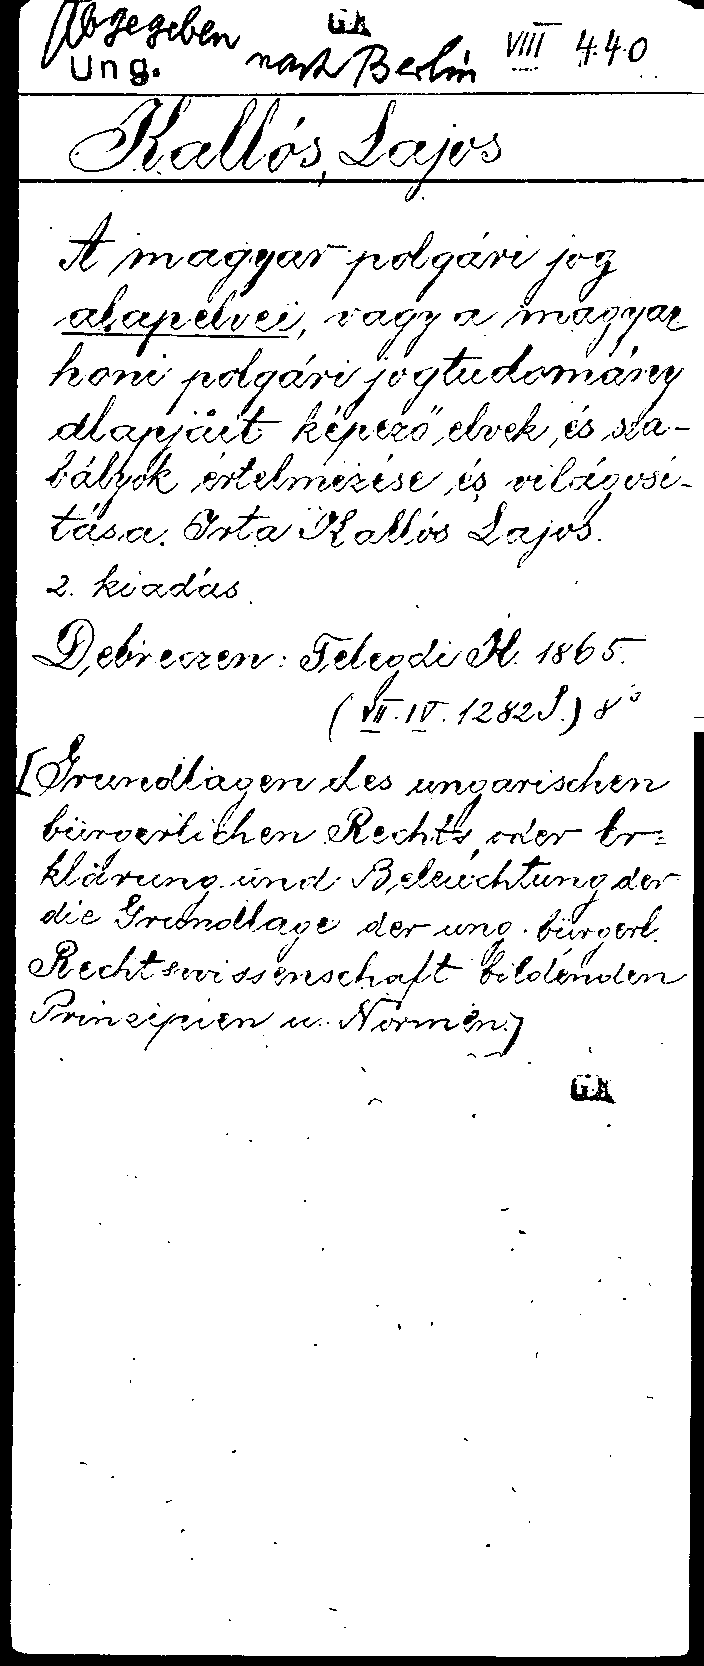 Abgegeben nach Berlin
GK
Ung.
VIII 440
Kallós, Lajos
A magyar polgári jog
alapelvei, vagy a magyar
honi polgári jogtudomány
alapjáit képező elvek és sza-
bályok értelmezése és világosi-
tása. Irta Kallós Lajos.
2. kiadás.
Debreczen: Telegdi K. 1865.
(VII. IV. 1282 S.) 8°
[Grundlagen des ungarischen
bürgerlichen Rechts, oder Er-
klärung und Beleuchtung der
die Grundlage der ung. bürgerl.
Rechtswissenschaft bildenden
Prinzipien u. Normen.]
GK